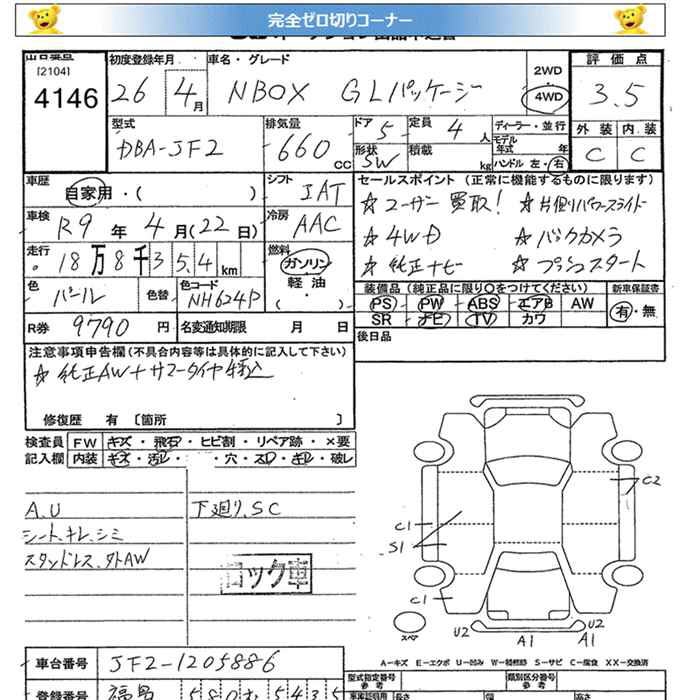 完全ゼロ切りコーナー
出品番号 [2104] 4146
初度登録年月 26 4月
車名・グレード NBOX GLパッケージ
2WD 4WD
評価点 3.5
外装 内装 C C
型式 DBA-JF2
排気量 660 cc
ドア 5 形状 SW
定員 4人 積載 kg
ディーラー・並行
モデル年式 年
ハンドル 左・右
車歴 自家用・( )
シフト IAT
セールスポイント (正常に機能するものに限ります)
☆ユーザー買取! ☆片側パワースライド
☆4WD ☆バックカメラ
☆純正ナビ ☆プッシュスタート
車検 R9年 4月(22日)
冷房 AAC
走行 18万8千35.4km
燃料 ガソリン 軽油 ( ・ )
色 パール 色替 色コード NH624P
装備品 (純正品に限り○をつけてください) 新車保証書
PS PW ABS エアB AW 有・無
SR ナビ TV カワ
R券 9790円 名変通知期限 月 日
後日品
注意事項申告欄(不具合内容等は具体的に記入して下さい)
☆純正AW+サマータイヤ積込
修復歴 有 〔箇所 〕
検査員 FW キズ・飛石・ヒビ割・リペア跡・×要
記入欄 内装 キズ・汚レ・ ・穴・スレ・キレ・破レ
A.U 下廻り.SC
シート.キレ.シミ
スタッドレス.外AW
ロック車
C2
C1
S1
C1
スペア
U2 A1 U2 A1
A-キズ E-エクボ U-凹み W-補修跡 S-サビ C-腐食 XX-交換済
車台番号 JF2-1205886
型式指定番号 参考 類別区分番号 参考
登録番号 福島 580む5435
長さ 幅 高さ